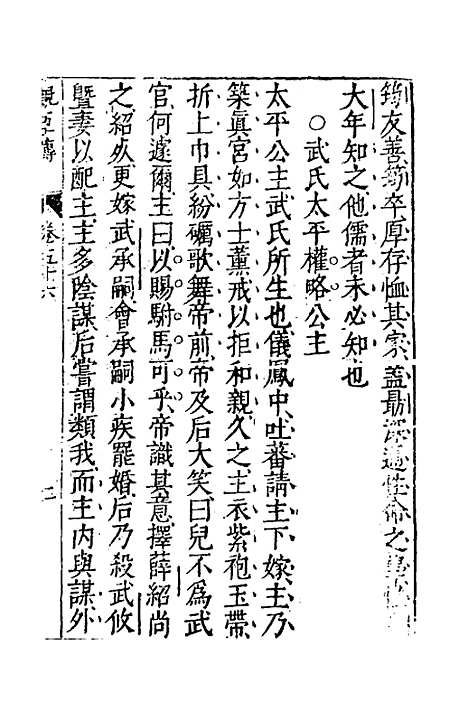 筠友善筠卒厚存恤其家蓋最深通性命之
大年知之他儒者未必知也
○武氏太平權略公主
太平公主武氏所生也儀鳳中吐蕃請主下嫁主乃
築真宮如方士薰戒以拒和親久之主衣紫袍玉帶
折上巾具紛礪歌舞帝前帝及后大笑曰兒不為武
官何遽爾主曰以賜駙馬可乎帝識其意擇薛紹尚
之紹死更嫁武承嗣會承嗣小疾罷婚后乃殺武攸
暨妻以配主主多陰謀后嘗謂類我而主內與謀外
卷五十六